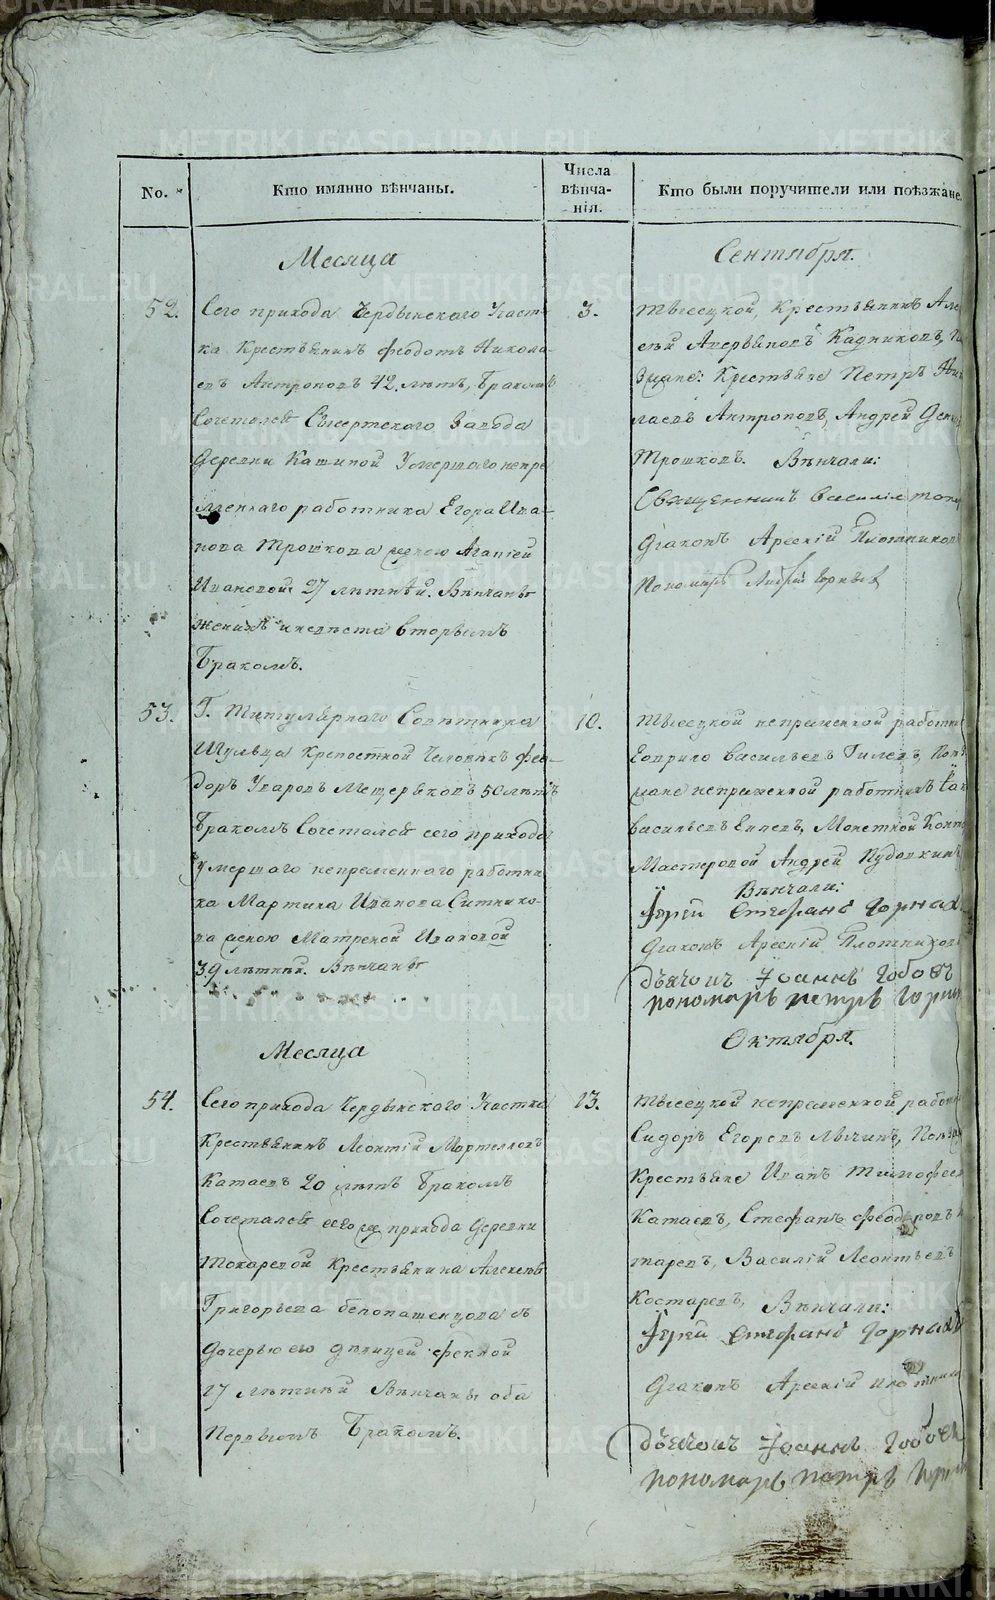 No.
Кто имянно вѣнчаны.
Числа
вѣнча-
нія.
Кто были поручители или поѣзжане.
Месяца
Сентября.
52.
Сего прихода Чердынского Участ-
ка Крестьянинъ Феодотъ Никола-
евъ Антроповъ 42 лѣтъ, Бракомъ
Сочетался Сысертского Завода
Деревни Кашиной Умершаго непре
меннаго работника Егора Ива-
нова Трошкова женою Агапіей
Ивановой 27 лѣтней. Вѣнчаны
женихъ и невѣста вторымъ
Бракомъ.
3.
Тысецкой, Крестьянинъ Але
ксѣй Аверьяновъ Кадниковъ,
Крестьяне Петръ Ник
лаевъ Антроповъ, Андрей
Трошковъ. Вѣнчали:
Священникъ Василій
Діаконъ Арсеній Плотников
Пономарь
53.
Г. Титулярнаго Советника
Шульца Крепостной Человѣкъ Фео-
доръ Уваровъ Мещеряковъ 50 лѣтъ
Бракомъ Сочетался сего прихода
умершаго непременнаго работни
ка Мартина Иванова Ситнико-
ва женою Матреной Ивановой
39 лѣтней. Вѣнчаны
10.
Тысецкой непременной работни
Гаврило Васильевъ Гилевъ,
жане непременной работникъ
Васильевъ Монетной Конто
Мастеровой Андрей
Вѣнчали:
Іерей Стефанъ
Діаконъ Арсеній Плотников
Дьячокъ Іоаннъ
пономарь петръ
Месяца
Октября.
54.
Сего прихода Чердынского Участка
Крестьянинъ Леонтій
Катаевъ 20 лѣтъ Бракомъ
Сочетался сего же прихода Деревни
Токаревой Крестьянина Алексея
Григорьева Белопашенцова съ
дочерью его девицей Феклой
17 лѣтней Вѣнчаны оба
Первымъ Бракомъ.
13.
Тысецкой непременной работн
Сидоръ Егоровъ
Крестьяне Иванъ Тимофеев
Катаевъ, Стефанъ Феодоровъ
таревъ, Василій Леонтьевъ
Костаревъ, Вѣнчали:
Іерей Стефанъ
Діаконъ Арсеній
Дьячокъ Іоаннъ
пономарь петръ
METRIKI.GASO-URAL.RU